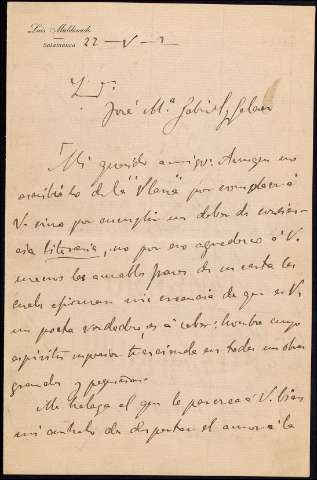 Luis Maldonado
SALAMANCA
22-V-
José M.ª Gabriel y Galan
Mi querido amigo: Aunque no
escribí lo de la "Plana" por complacer á
V. sino por cumplir un deber de
literaria, no por eso agradezco á V.
menos las amables frases de su carta las
cuales afirman mi creencia de que es V.
un poeta verdadero, es á saber: hombre cuyo
espíritu superior trasciende en todas sus obras
grandes y pequeñas.
Me halaga el que le parezca á V. bien
mi de despertar el amor á la